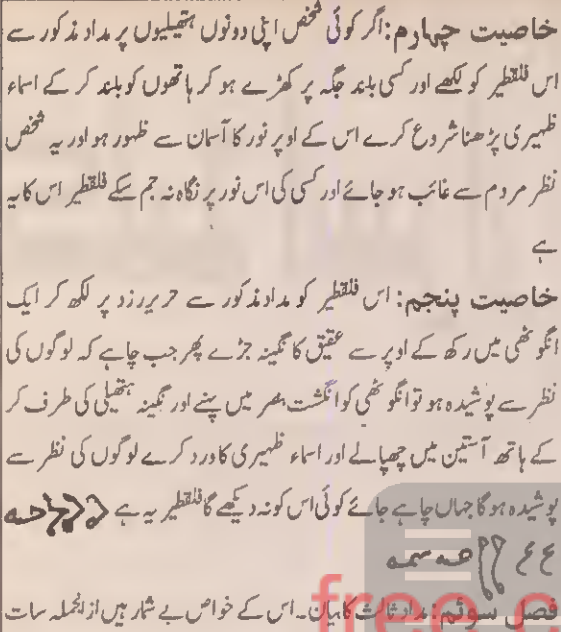 خاصیت چہارم: اگر کوئی شخص اپنی دونوں ہتھیلیوں پر مداد مذکور سے
اس فلقطیر کو لکھے اور کسی بلند جگہ پر کھڑے ہو کر ہاتھوں کو بلند کر کے اسماء
ظہیری پڑھنا شروع کرے اس کے اوپر نور کا آسمان سے ظہور ہو اور یہ شخص
نظر مردم سے غائب ہو جائے اور کسی کی اس نور پر نگاہ نہ جم سکے فلقطیر اس کا یہ
ہے
خاصیت پنجم: اس فلقطیر کو مداد مذکور سے حریر زرد پر لکھ کر ایک
انگوٹھی میں رکھ کے اوپر سے عقیق کا نگینہ جڑے پھر جب چاہے کہ لوگوں کی
نظر سے پوشیدہ ہو تو انگوٹھی کو انگشت بصر میں پہنے اور نگینہ ہتھیلی کی طرف کر
کے ہاتھ آستین میں چھپالے اور اسماء ظہیری کا ورد کرے لوگوں کی نظر سے
پوشیدہ ہو گا جہاں چاہے جائے کوئی اس کو نہ دیکھے گا فلقطیر یہ ہے
ع ع
فصل سوئم: مداد ثالث کا بیان۔ اس کے خواص بے شمار ہیں ازانجملہ سات
free